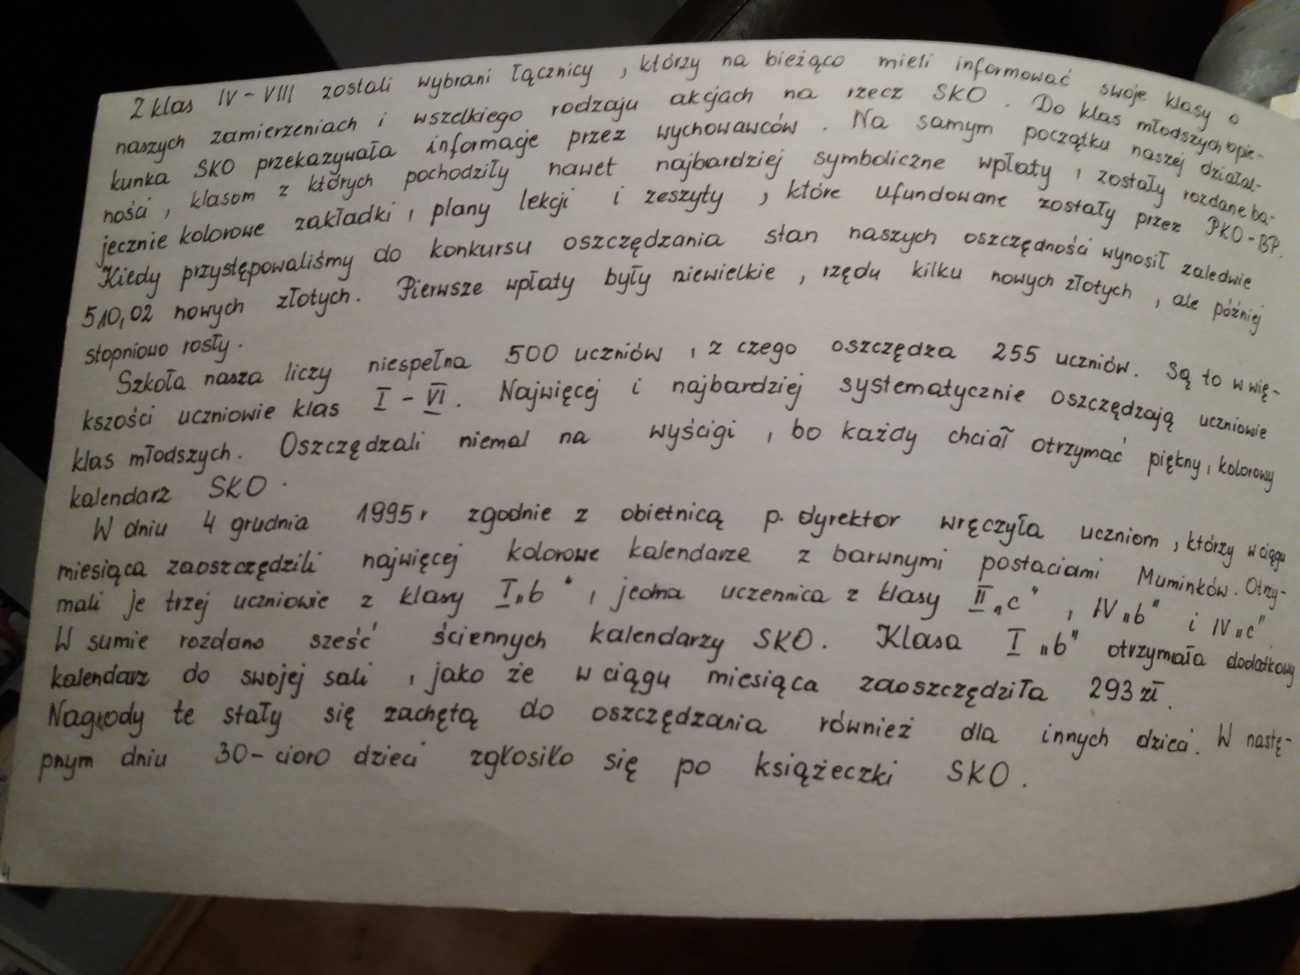 Z klas IV - VIII zostali wybrani łącznicy , którzy na bieżąco mieli informować swoje klasy o
naszych zamierzeniach i wszelkiego rodzaju akcjach na rzecz SKO . Do klas młodszych opie-
kunka SKO przekazywała informacje przez wychowawców . Na samym początku naszej działal-
ności , klasom z których pochodziły nawet najbardziej symboliczne wpłaty , zostały rozdane ba-
jecznie kolorowe zakładki , plany lekcji i zeszyty , które ufundowane zostały przez PKO-BP.
Kiedy przystępowaliśmy do konkursu oszczędzania stan naszych oszczędności wynosił zaledwie
510,02 nowych złotych. Pierwsze wpłaty były niewielkie , rzędu kilku nowych złotych , ale później
stopniowo rosły .
Szkoła nasza liczy niespełna 500 uczniów , z czego oszczędza 255 uczniów. Są to w wię-
kszości uczniowie klas I - VI . Najwięcej i najbardziej systematycznie oszczędzają uczniowie
klas młodszych. Oszczędzali niemal na wyścigi , bo każdy chciał otrzymać piękny , kolorowy
kalendarz SKO .
W dniu 4 grudnia 1995r zgodnie z obietnicą p. dyrektor wręczyła uczniom , którzy w ciągu
miesiąca zaoszczędzili najwięcej kolorowe kalendarze z barwnymi postaciami Muminków. Otrzy-
mali je trzej uczniowie z klasy I „b" , jedna uczennica z klasy II „c" , IV „b" i IV „c"
W sumie rozdano sześć ściennych kalendarzy SKO. Klasa I „b" otrzymała dodatkowy
kalendarz do swojej sali , jako że w ciągu miesiąca zaoszczędziła 293 zł.
Nagrody te stały się zachętą do oszczędzania również dla innych dzieci. W nastę-
pnym dniu 30-cioro dzieci zgłosiło się po książeczki SKO .